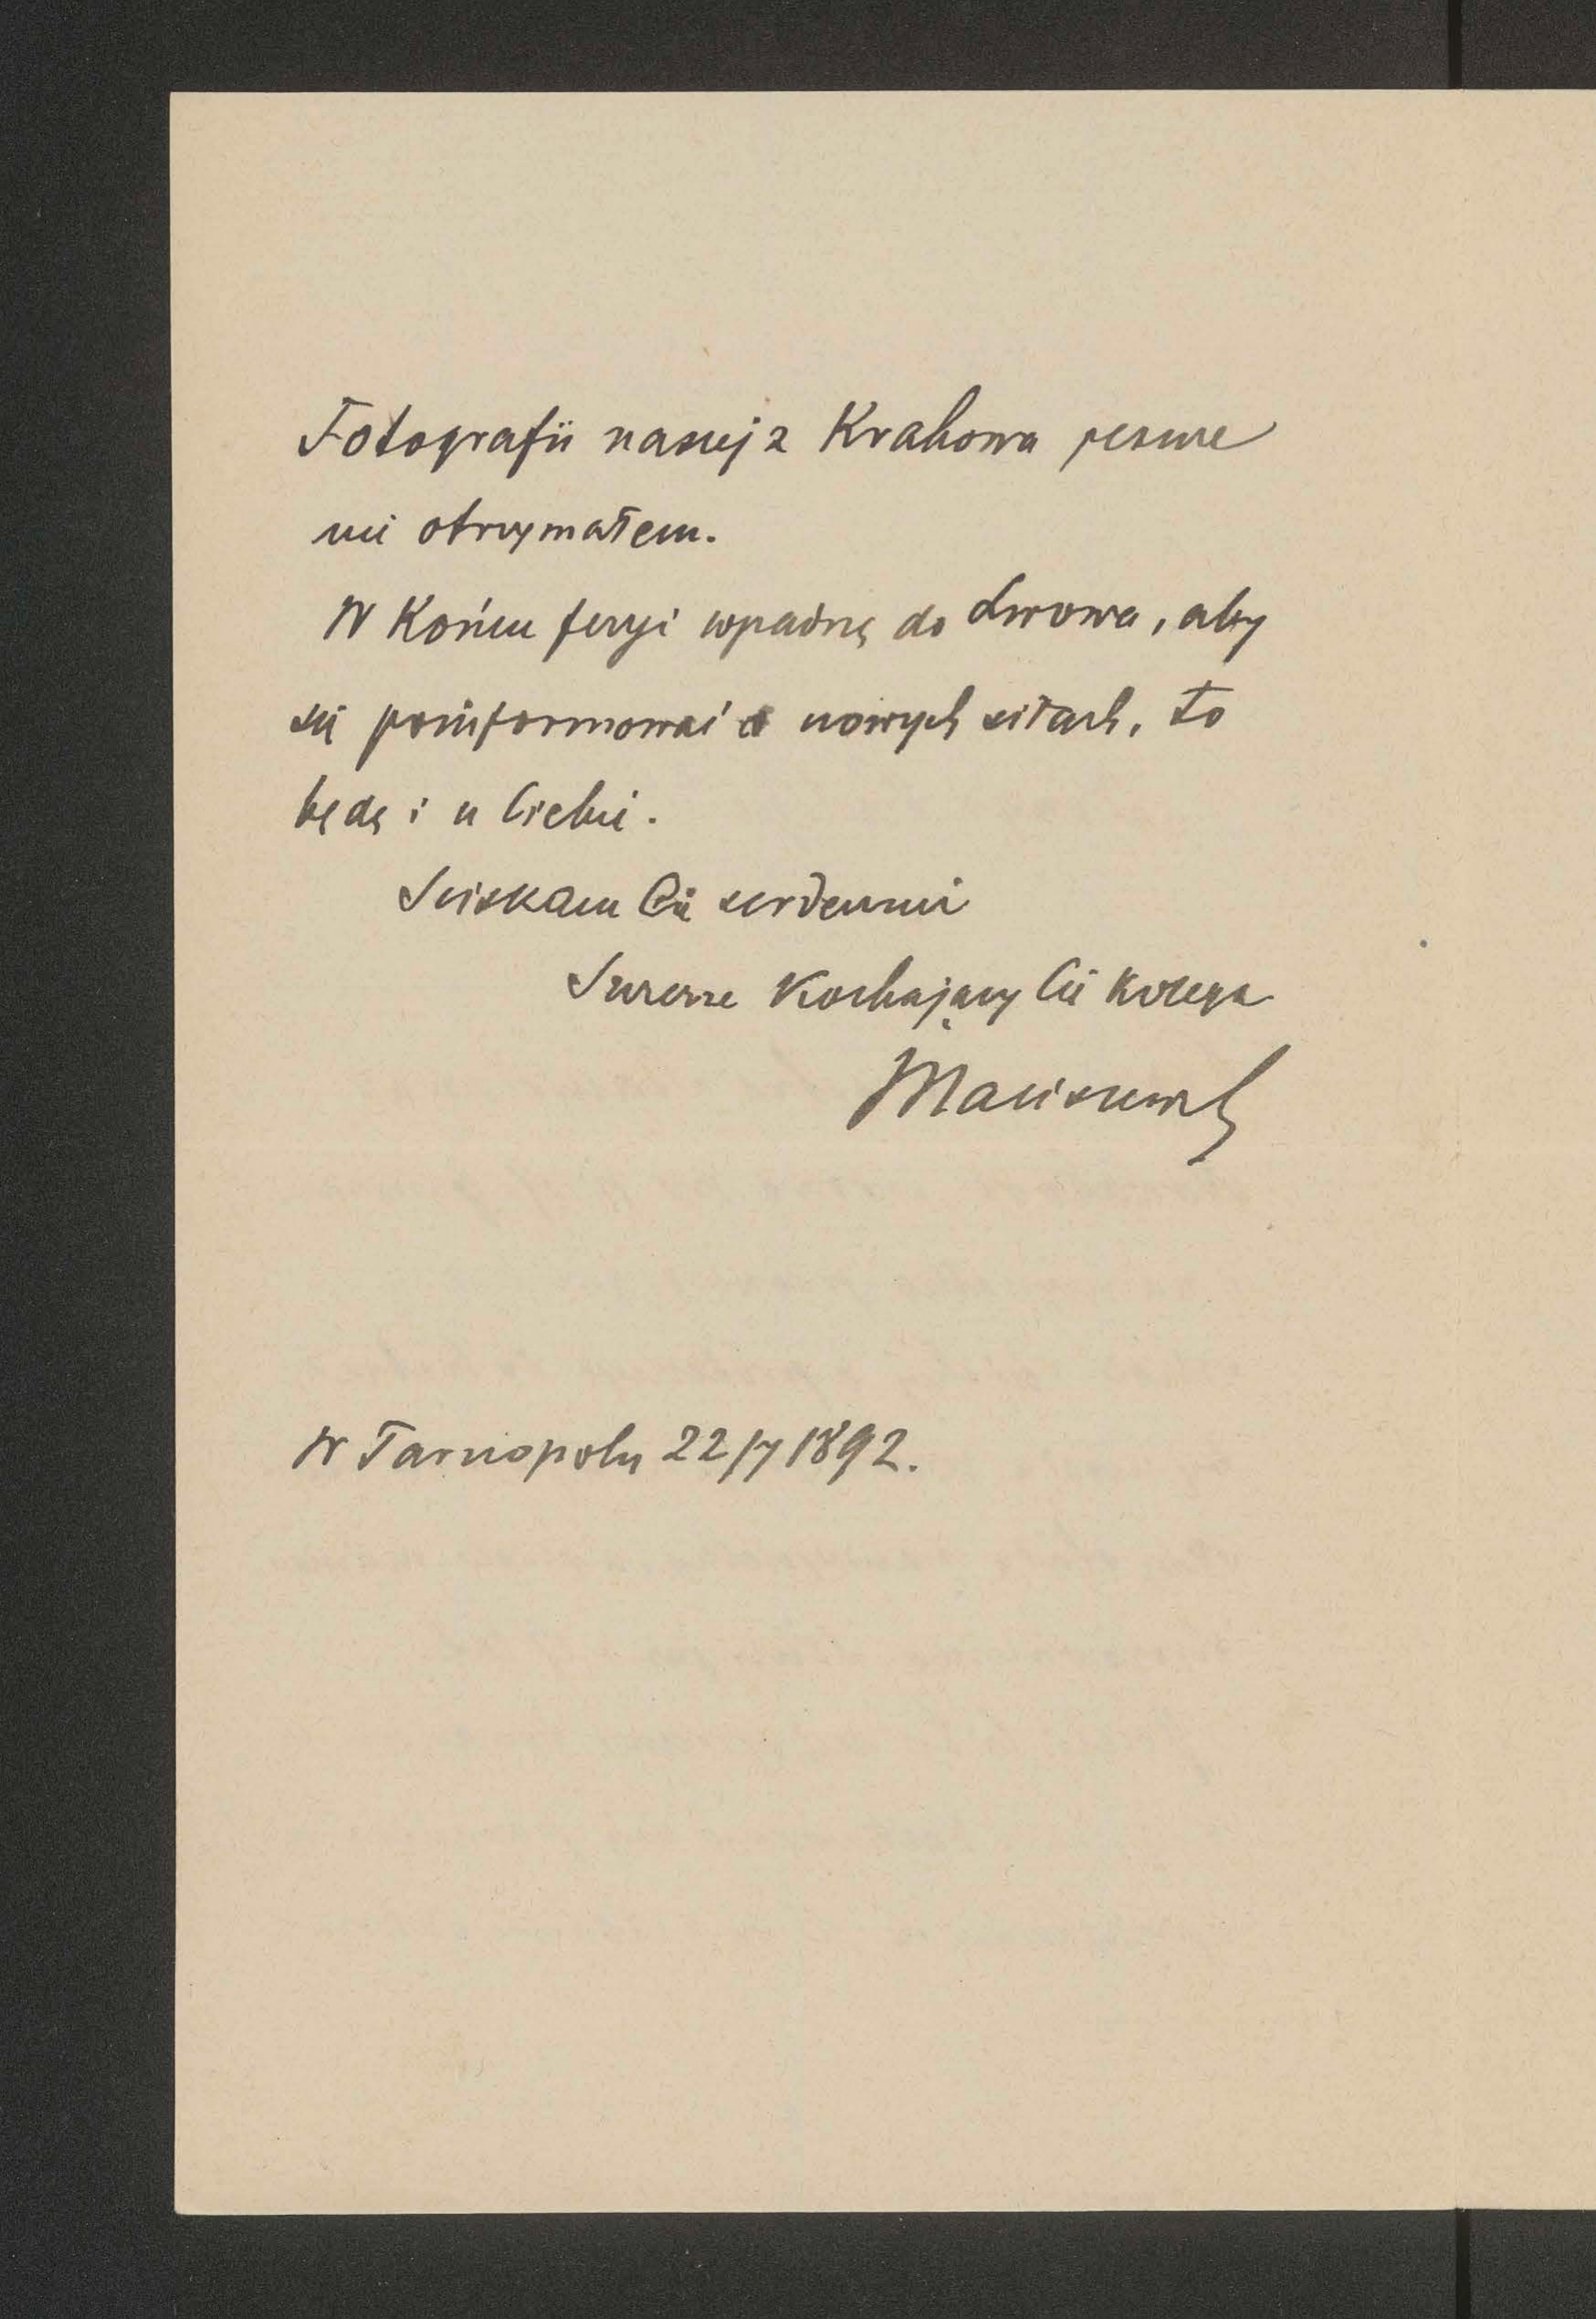 Fotografii naszej z Krakowa jeszcze
nie otrzymałem.
W końcu feryi wpadnę do Lwowa, aby
się poinformować o nowych siłach, to
będę i u Ciebie.
Sciskam Cię serdecznie
Szczerze kochający Cię kolega
Maciszewski
W Tarnopolu 22/7 1892.